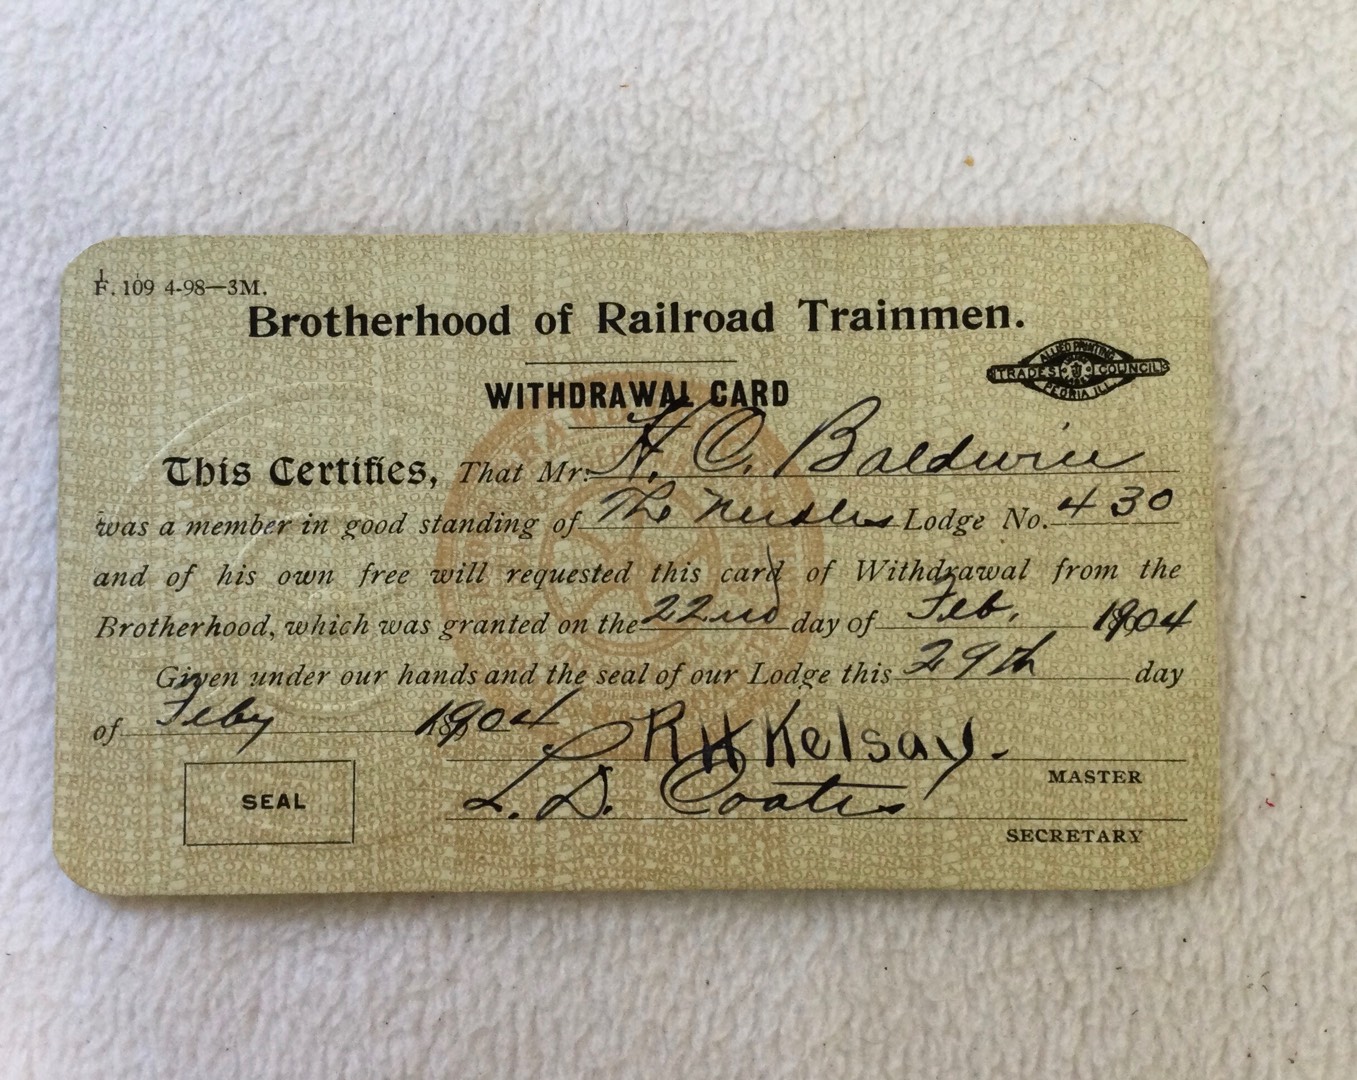 F. 109 4-98—3M.
Brotherhood of Railroad Trainmen.
ALLIED PRINTING
TRADES COUNCIL
PEORIA ILL
WITHDRAWAL CARD
This Certifies, That Mr. H. C. Baldwin
was a member in good standing of The Needles Lodge No. 430
and of his own free will requested this card of Withdrawal from the
Brotherhood, which was granted on the 22nd day of Feb. 1904
Given under our hands and the seal of our Lodge this 29th day
of Feby 1904
R H Kelsay.
MASTER
SEAL
L. D. Coates
SECRETARY